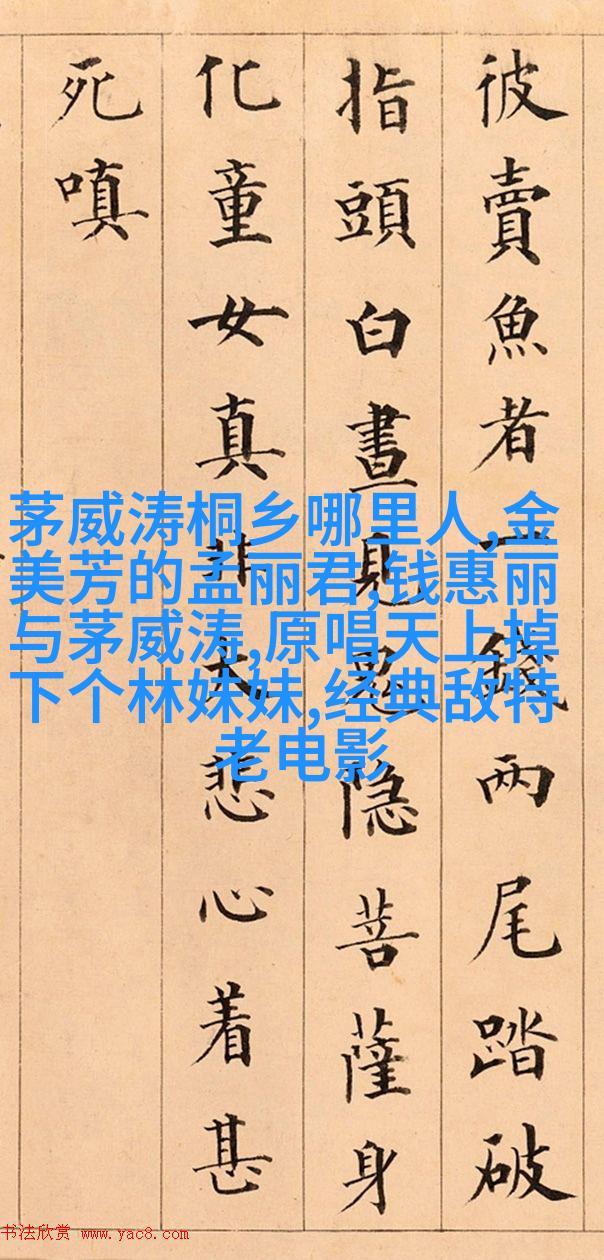 彼賣魚者一錢兩尾踏破
指頭白晝見鬼隐菩薩身
化童女真非大悲心着甚
死嗔
茅威涛桐乡哪里人,金
美芳的孟丽君,钱惠丽
与茅威涛,原唱天上掉
下个林妹妹,经典敌特
老电影
书法欣赏 www.yac8.com